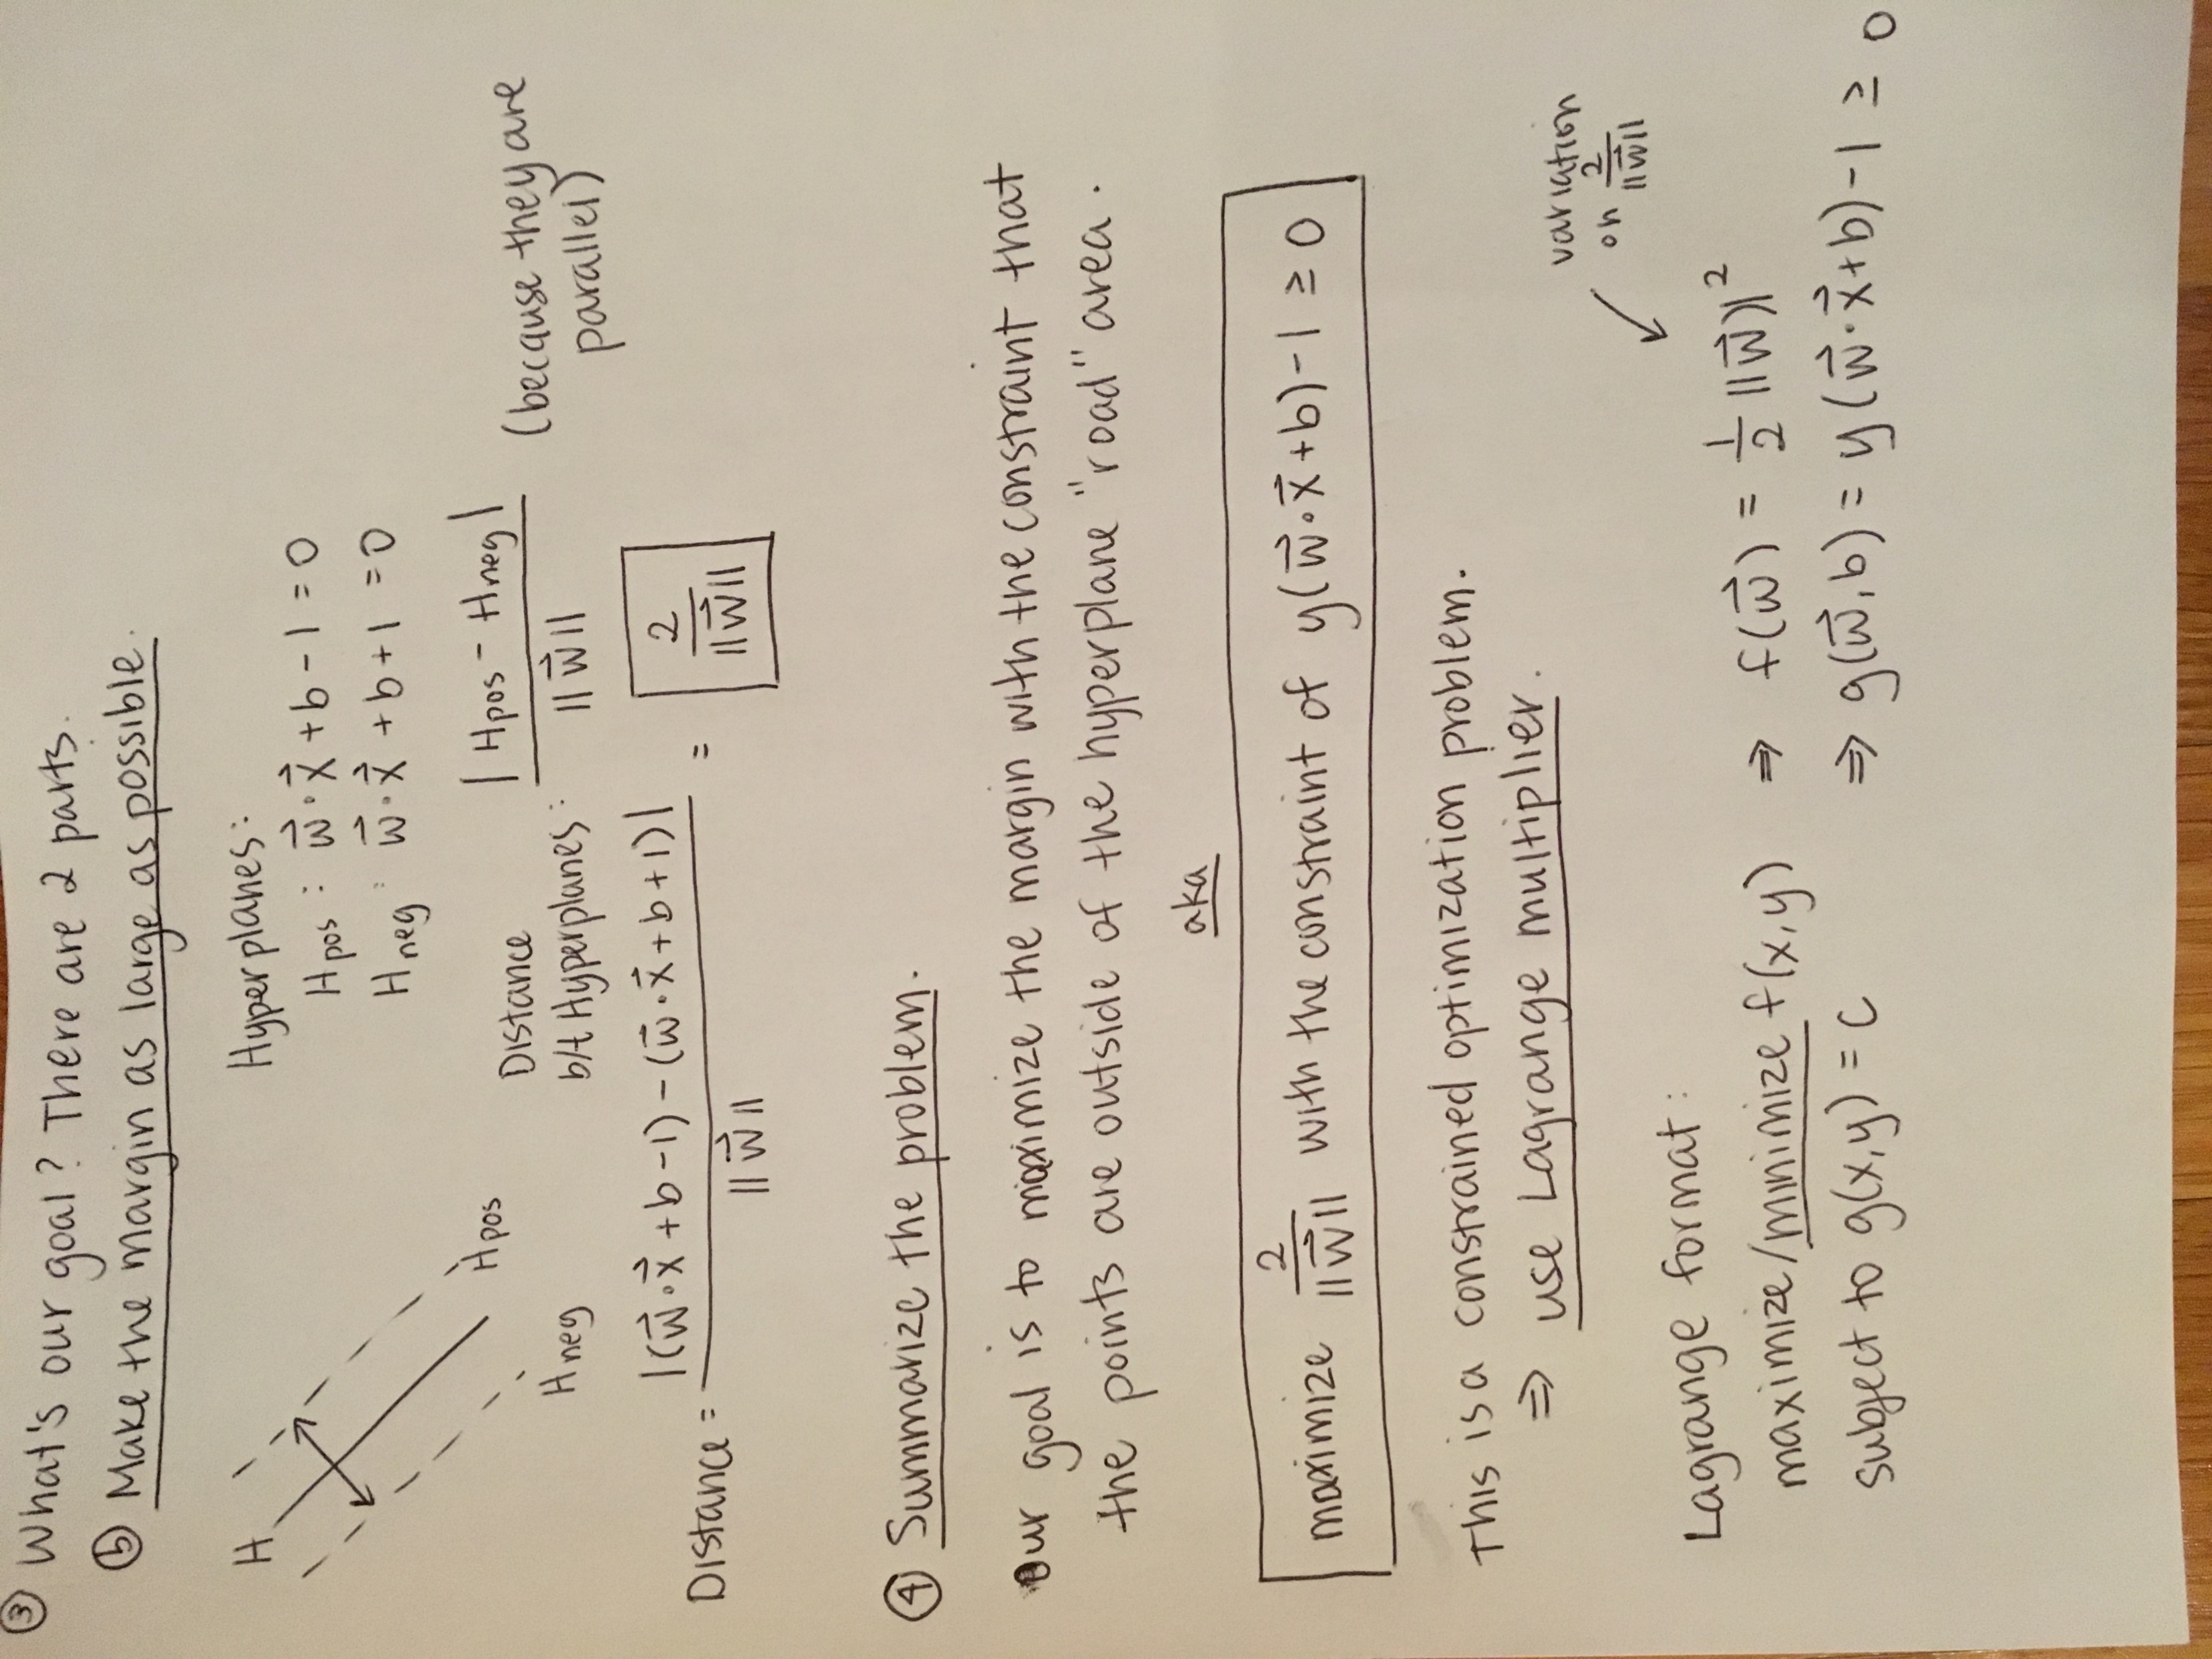 ③ What's our goal? There are 2 parts.
ⓑ Make the margin as large as possible.
H
Hpos
Hneg
Hyperplanes:
Hpos: w⃗·x⃗+b-1=0
Hneg: w⃗·x⃗+b+1=0
Distance
b/t Hyperplanes: |Hpos - Hneg| / ||w⃗|| (because they are
parallel)
Distance = |(w⃗·x⃗+b-1)-(w⃗·x⃗+b+1)| / ||w⃗|| = 2/||w⃗||
④ Summarize the problem.
Our goal is to maximize the margin with the constraint that
the points are outside of the hyperplane "road" area.
aka
maximize 2/||w⃗|| with the constraint of y(w⃗·x⃗+b)-1≥0
This is a constrained optimization problem.
⇒ use Lagrange multiplier.
variation
on 2/||w⃗||
↙
Lagrange format:
maximize/minimize f(x,y) ⇒ f(w⃗) = 1/2 ||w⃗||²
subject to g(x,y)=c ⇒ g(w⃗,b) = y(w⃗·x⃗+b)-1≥0